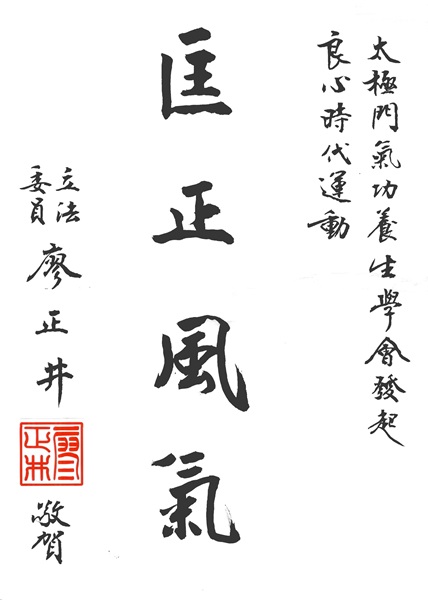 太極門氣功養生學會發起
良心時代運動
匡正風氣
立法委員 廖正井 敬賀
廖正井